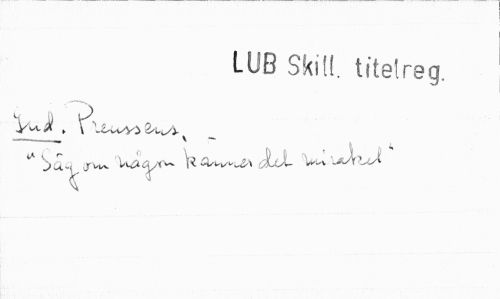 LUB Skill. titelreg.
Jud. Preussens.
"Säg om någon känner det mirakel"